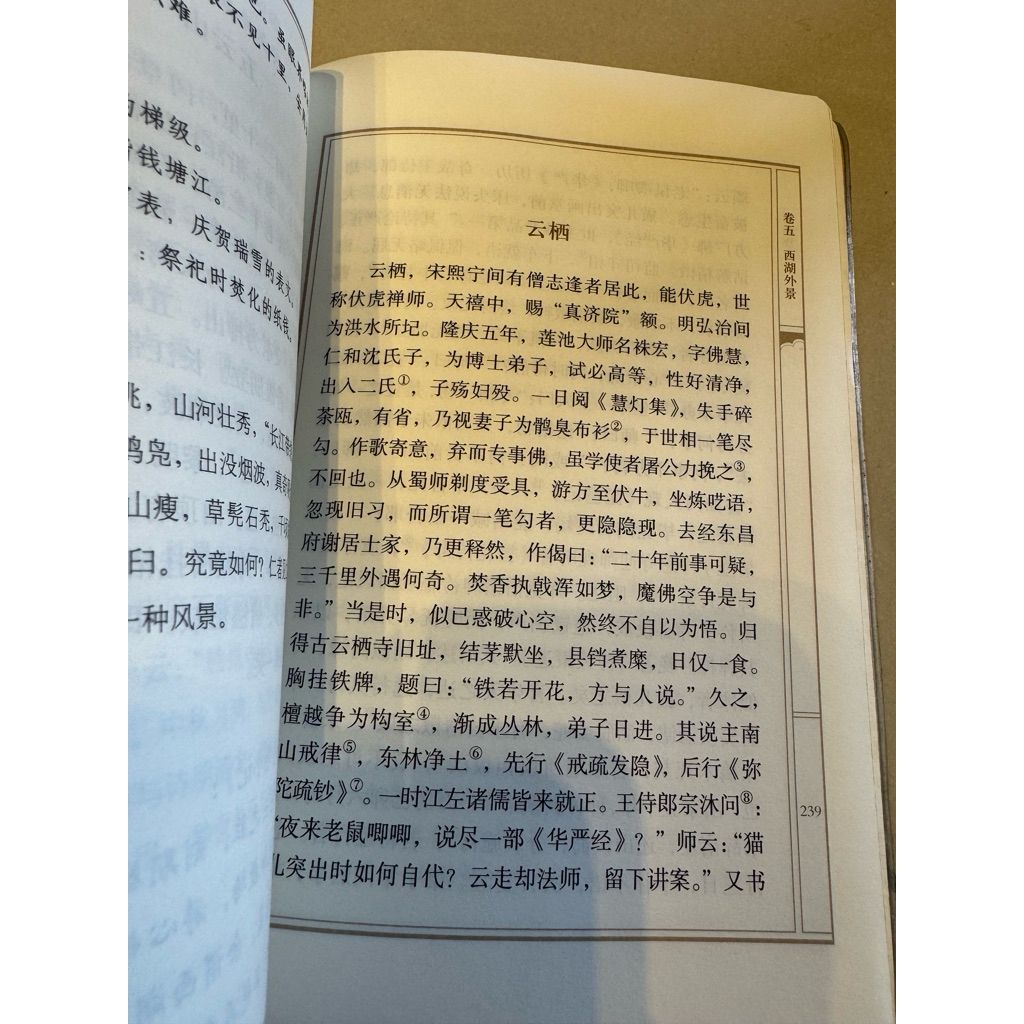 难。
不见十里，
的梯级。
钱塘江。
表，庆贺瑞雪的表文。
：祭祀时焚化的纸钱。
兆，山河壮秀，“长江
鸟凫，出没烟波，真
山瘦，草髡石秃，
臼。究竟如何？
一种风景。
卷五 西湖外景
云栖
云栖，宋熙宁间有僧志逢者居此，能伏虎，世
称伏虎禅师。天禧中，赐“真济院”额。明弘治间
为洪水所圮。隆庆五年，莲池大师名袾宏，字佛慧，
仁和沈氏子，为博士弟子，试必高等，性好清净，
出入二氏①，子殇妇殁。一日阅《慧灯集》，失手碎
茶瓯，有省，乃视妻子为鹘臭布衫②，于世相一笔尽
勾。作歌寄意，弃而专事佛，虽学使者屠公力挽之③，
不回也。从蜀师剃度受具，游方至伏牛，坐炼呓语，
忽现旧习，而所谓一笔勾者，更隐隐现。去经东昌
府谢居士家，乃更释然，作偈曰：“二十年前事可疑，
三千里外遇何奇。焚香执戟浑如梦，魔佛空争是与
非。”当是时，似已惑破心空，然终不自以为悟。归
得古云栖寺旧址，结茅默坐，县铛煮糜，日仅一食。
胸挂铁牌，题曰：“铁若开花，方与人说。”久之，
檀越争为构室④，渐成丛林，弟子日进。其说主南
山戒律⑤，东林净土⑥，先行《戒疏发隐》，后行《弥
陀疏钞》⑦。一时江左诸儒皆来就正。王侍郎宗沐问⑧：
“夜来老鼠唧唧，说尽一部《华严经》？”师云：“猫
儿突出时如何自代？云走却法师，留下讲案。”又书
239